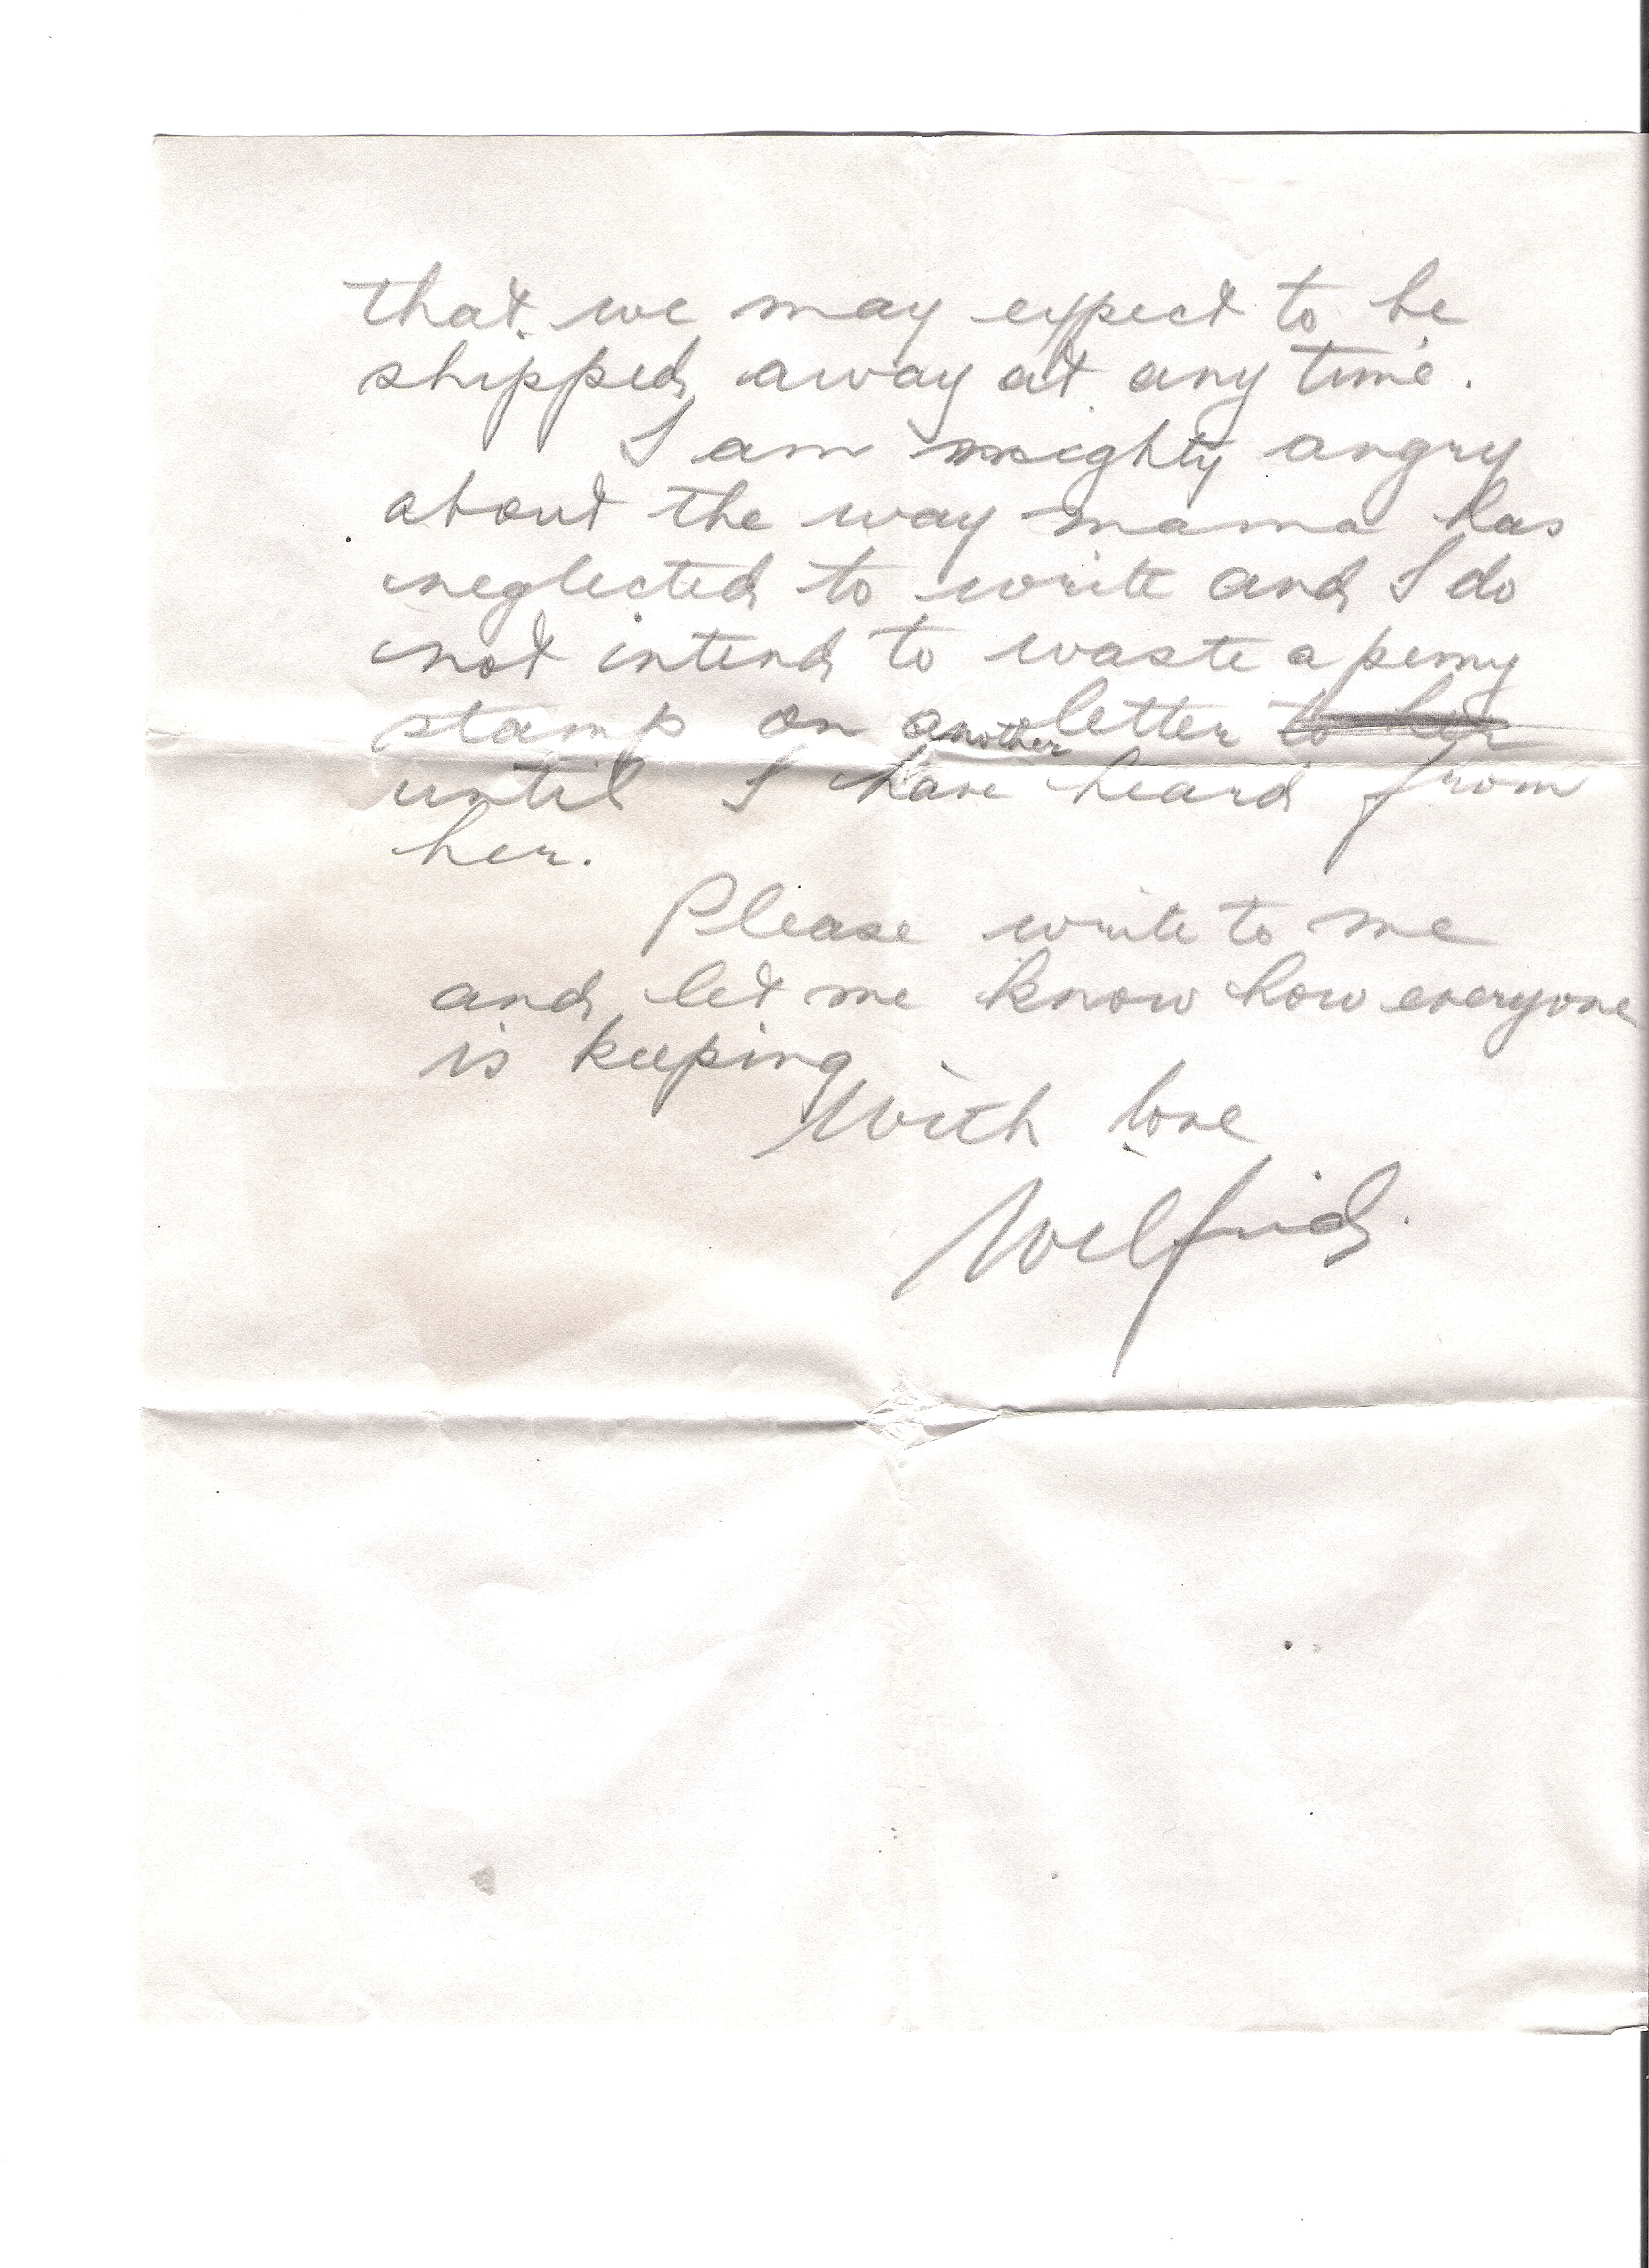 that we may expect to be
shipped away at any time.
I am mighty angry
about the way mama has
neglected to write and I do
not intend to waste a penny
stamp on another letter to her
until I have heard from
her.
Please write to me
and let me know how everyone
is keeping
With love
Wilfrid.